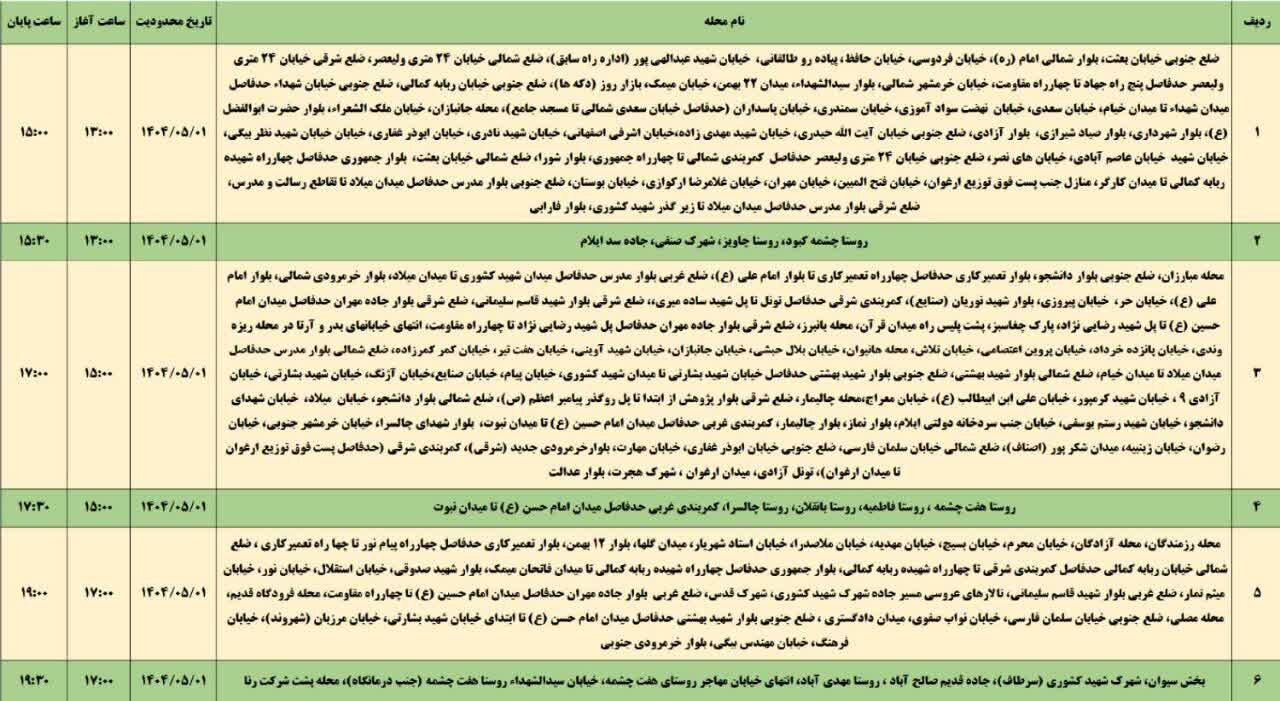 ردیف	نام محله	تاریخ محدودیت	ساعت آغاز	ساعت پایان
ضلع جنوبی خیابان بعثت، بلوار شمالی امام (ره)، خیابان فردوسی، خیابان حافظ، پیاده رو طالقانی، خیابان شهید عبدالهی پور (اداره راه سابق)، ضلع شمالی خیابان ۲۴ متری ولیعصر، ضلع شرقی خیابان ۲۴ متری
ولیعصر حدفاصل پنج راه جهاد تا چهارراه مقاومت، خیابان خرمشهر شمالی، بلوار سیدالشهداء، میدان ۲۲ بهمن، خیابان میمک، بازار روز (دکه ها)، ضلع جنوبی خیابان ربابه کمالی، ضلع جنوبی خیابان شهداء حدفاصل
میدان شهداء تا میدان خیام، خیابان سعدی، خیابان نهضت سواد آموزی، خیابان سمندری، خیابان پاسداران (حدفاصل خیابان سعدی شمالی تا مسجد جامع)، محله جانبازان، خیابان ملک الشعراء، بلوار حضرت ابوالفضل
۱	(ع)، بلوار شهرداری، بلوار صیاد شیرازی، بلوار آزادی، ضلع جنوبی خیابان آیت الله حیدری، خیابان شهید مهدی زاده،خیابان اشرفی اصفهانی، خیابان شهید نادری، خیابان ابوذر غفاری، خیابان خیابان شهید نظر بیگی،	۱۴۰۴/۰۵/۰۱	۱۳:۰۰	۱۵:۰۰
خیابان شهید خیابان عاصم آبادی، خیابان های نصر، ضلع جنوبی خیابان ۲۴ متری ولیعصر حدفاصل کمربندی شمالی تا چهارراه جمهوری، بلوار شورا، ضلع شمالی خیابان بعثت، بلوار جمهوری حدفاصل چهارراه شهیده
ربابه کمالی تا میدان کارگر، منازل جنب پست فوق توزیع ارغوان، خیابان فتح المبین، خیابان مهران، خیابان غلامرضا ارکوازی، خیابان بوستان، ضلع جنوبی بلوار مدرس حدفاصل میدان میلاد تا تقاطع رسالت و مدرس،
ضلع شرقی بلوار مدرس حدفاصل میدان میلاد تا زیر گذر شهید کشوری، بلوار فارابی
۲	روستا چشمه کبود، روستا چاویز، شهرک صنفی، جاده سد ایلام	۱۴۰۴/۰۵/۰۱	۱۳:۰۰	۱۵:۳۰
محله مبارزان، ضلع جنوبی بلوار دانشجو، بلوار تعمیرکاری حدفاصل چهارراه تعمیرکاری تا بلوار امام علی (ع)، ضلع غربی بلوار مدرس حدفاصل میدان شهید کشوری تا میدان میلاد، بلوار خرمرودی شمالی، بلوار امام
علی (ع)، خیابان حر، خیابان پیروزی، بلوار شهید نوریان (صنایع)، کمربندی شرقی حدفاصل تونل تا پل شهید ساده میری،، ضلع شرقی بلوار شهید قاسم سلیمانی، ضلع شرقی بلوار جاده مهران حدفاصل میدان امام
حسین (ع) تا پل شهید رضایی نژاد، پارک چغاسبز، پشت پلیس راه میدان قرآن، محله بانبرز، ضلع شرقی بلوار جاده مهران حدفاصل پل شهید رضایی نژاد تا چهارراه مقاومت، انتهای خیابانهای بدر و آرتا در محله ریزه
وندی، خیابان پانزده خرداد، خیابان پروین اعتصامی، خیابان تلاش، محله هانیوان، خیابان بلال حبشی، خیابان جانبازان، خیابان شهید آوینی، خیابان هفت تیر، خیابان کمر کمرزاده، ضلع شمالی بلوار مدرس حدفاصل
۳	میدان میلاد تا میدان خیام، ضلع شمالی بلوار شهید بهشتی، ضلع جنوبی بلوار شهید بهشتی حدفاصل خیابان شهید بشارتی تا میدان شهید کشوری، خیابان پیام، خیابان صنایع،خیابان آژنگ، خیابان شهید بشارتی، خیابان	۱۴۰۴/۰۵/۰۱	۱۵:۰۰	۱۷:۰۰
آزادی ۹ ، خیابان شهید کرمپور، خیابان علی ابن ابیطالب (ع)، خیابان معراج،محله چالیمار، ضلع شرقی بلوار پژوهش از ابتدا تا پل روگذر پیامبر اعظم (ص)، ضلع شمالی بلوار دانشجو، خیابان میلاد، خیابان شهدای
دانشجو، خیابان شهید رستم یوسفی، خیابان جنب سردخانه دولتی ایلام، بلوار نماز، بلوار چالیمار، کمربندی غربی حدفاصل میدان امام حسین (ع) تا میدان نبوت، بلوار شهدای چالسرا، خیابان خرمشهر جنوبی، خیابان
رضوان، خیابان زینبیه، میدان شکر پور (اصناف)، ضلع شمالی خیابان سلمان فارسی، ضلع جنوبی خیابان ابوذر غفاری، خیابان مهارت، بلوارخرمرودی جدید (شرقی)، کمربندی شرقی (حدفاصل پست فوق توزیع ارغوان
تا میدان ارغوان)، تونل آزادی، میدان ارغوان ، شهرک هجرت، بلوار عدالت
۴	روستا هفت چشمه ، روستا فاطمیه، روستا بانقلان، روستا چالسرا، کمربندی غربی حدفاصل میدان امام حسن (ع) تا میدان نبوت	۱۴۰۴/۰۵/۰۱	۱۵:۰۰	۱۷:۳۰
محله رزمندگان، محله آزادگان، خیابان محرم، خیابان بسیج، خیابان مهدیه، خیابان ملاصدرا، خیابان استاد شهریار، میدان گلها، بلوار ۱۲ بهمن، بلوار تعمیرکاری حدفاصل چهارراه پیام نور تا چها راه تعمیرکاری ، ضلع
شمالی خیابان ربابه کمالی حدفاصل کمربندی شرقی تا چهارراه شهیده ربابه کمالی، بلوار جمهوری حدفاصل چهارراه شهیده ربابه کمالی تا میدان فاتحان میمک، بلوار شهید صدوقی، خیابان استقلال، خیابان نور، خیابان
۵	میثم تمار، ضلع غربی بلوار شهید قاسم سلیمانی، تالارهای عروسی مسیر جاده شهرک شهید کشوری، شهرک قدس، ضلع غربی بلوار جاده مهران حدفاصل میدان امام حسین (ع) تا چهارراه مقاومت، محله فرودگاه قدیم،	۱۴۰۴/۰۵/۰۱	۱۷:۰۰	۱۹:۰۰
محله مصلی، ضلع جنوبی خیابان سلمان فارسی، خیابان نواب صفوی، میدان دادگستری ، ضلع جنوبی بلوار شهید بهشتی حدفاصل میدان امام حسن (ع) تا ابتدای خیابان شهید بشارتی، خیابان مرزبان (شهروند)، خیابان
فرهنگ، خیابان مهندس بیگی، بلوار خرمرودی جنوبی
۶	بخش سیوان، شهرک شهید کشوری (سرطاف)، جاده قدیم صالح آباد ، روستا مهدی آباد، انتهای خیابان مهاجر روستای هفت چشمه، خیابان سیدالشهداء روستا هفت چشمه (جنب درمانگاه)، محله پشت شرکت رنا	۱۴۰۴/۰۵/۰۱	۱۷:۰۰	۱۹:۳۰